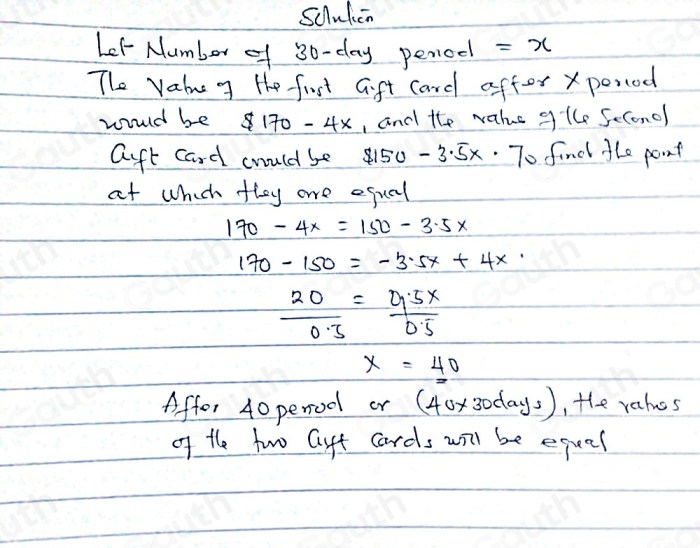 Solution
Let Number of 30-day period = x
The Value of the first Gift Card after x period
would be $170 - 4x, and the value of the Second
Gift Card would be $150 - 3.5x. To find the point
at which they are equal
170 - 4x = 150 - 3.5x
170 - 150 = -3.5x + 4x.
20 = 0.5x
0.5 0.5
x = 40
After 40 period or (40x30days), the values
of the two Gift Cards will be equal